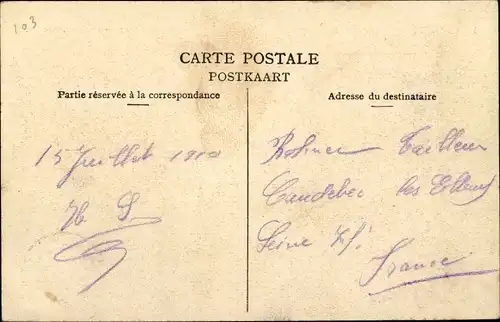 103
CARTE POSTALE
POSTKAART
Partie réservée à la correspondance
Adresse du destinataire
15 Juillet 1910
Tailleur
Caudebec les Elbeuf
Seine If.
France